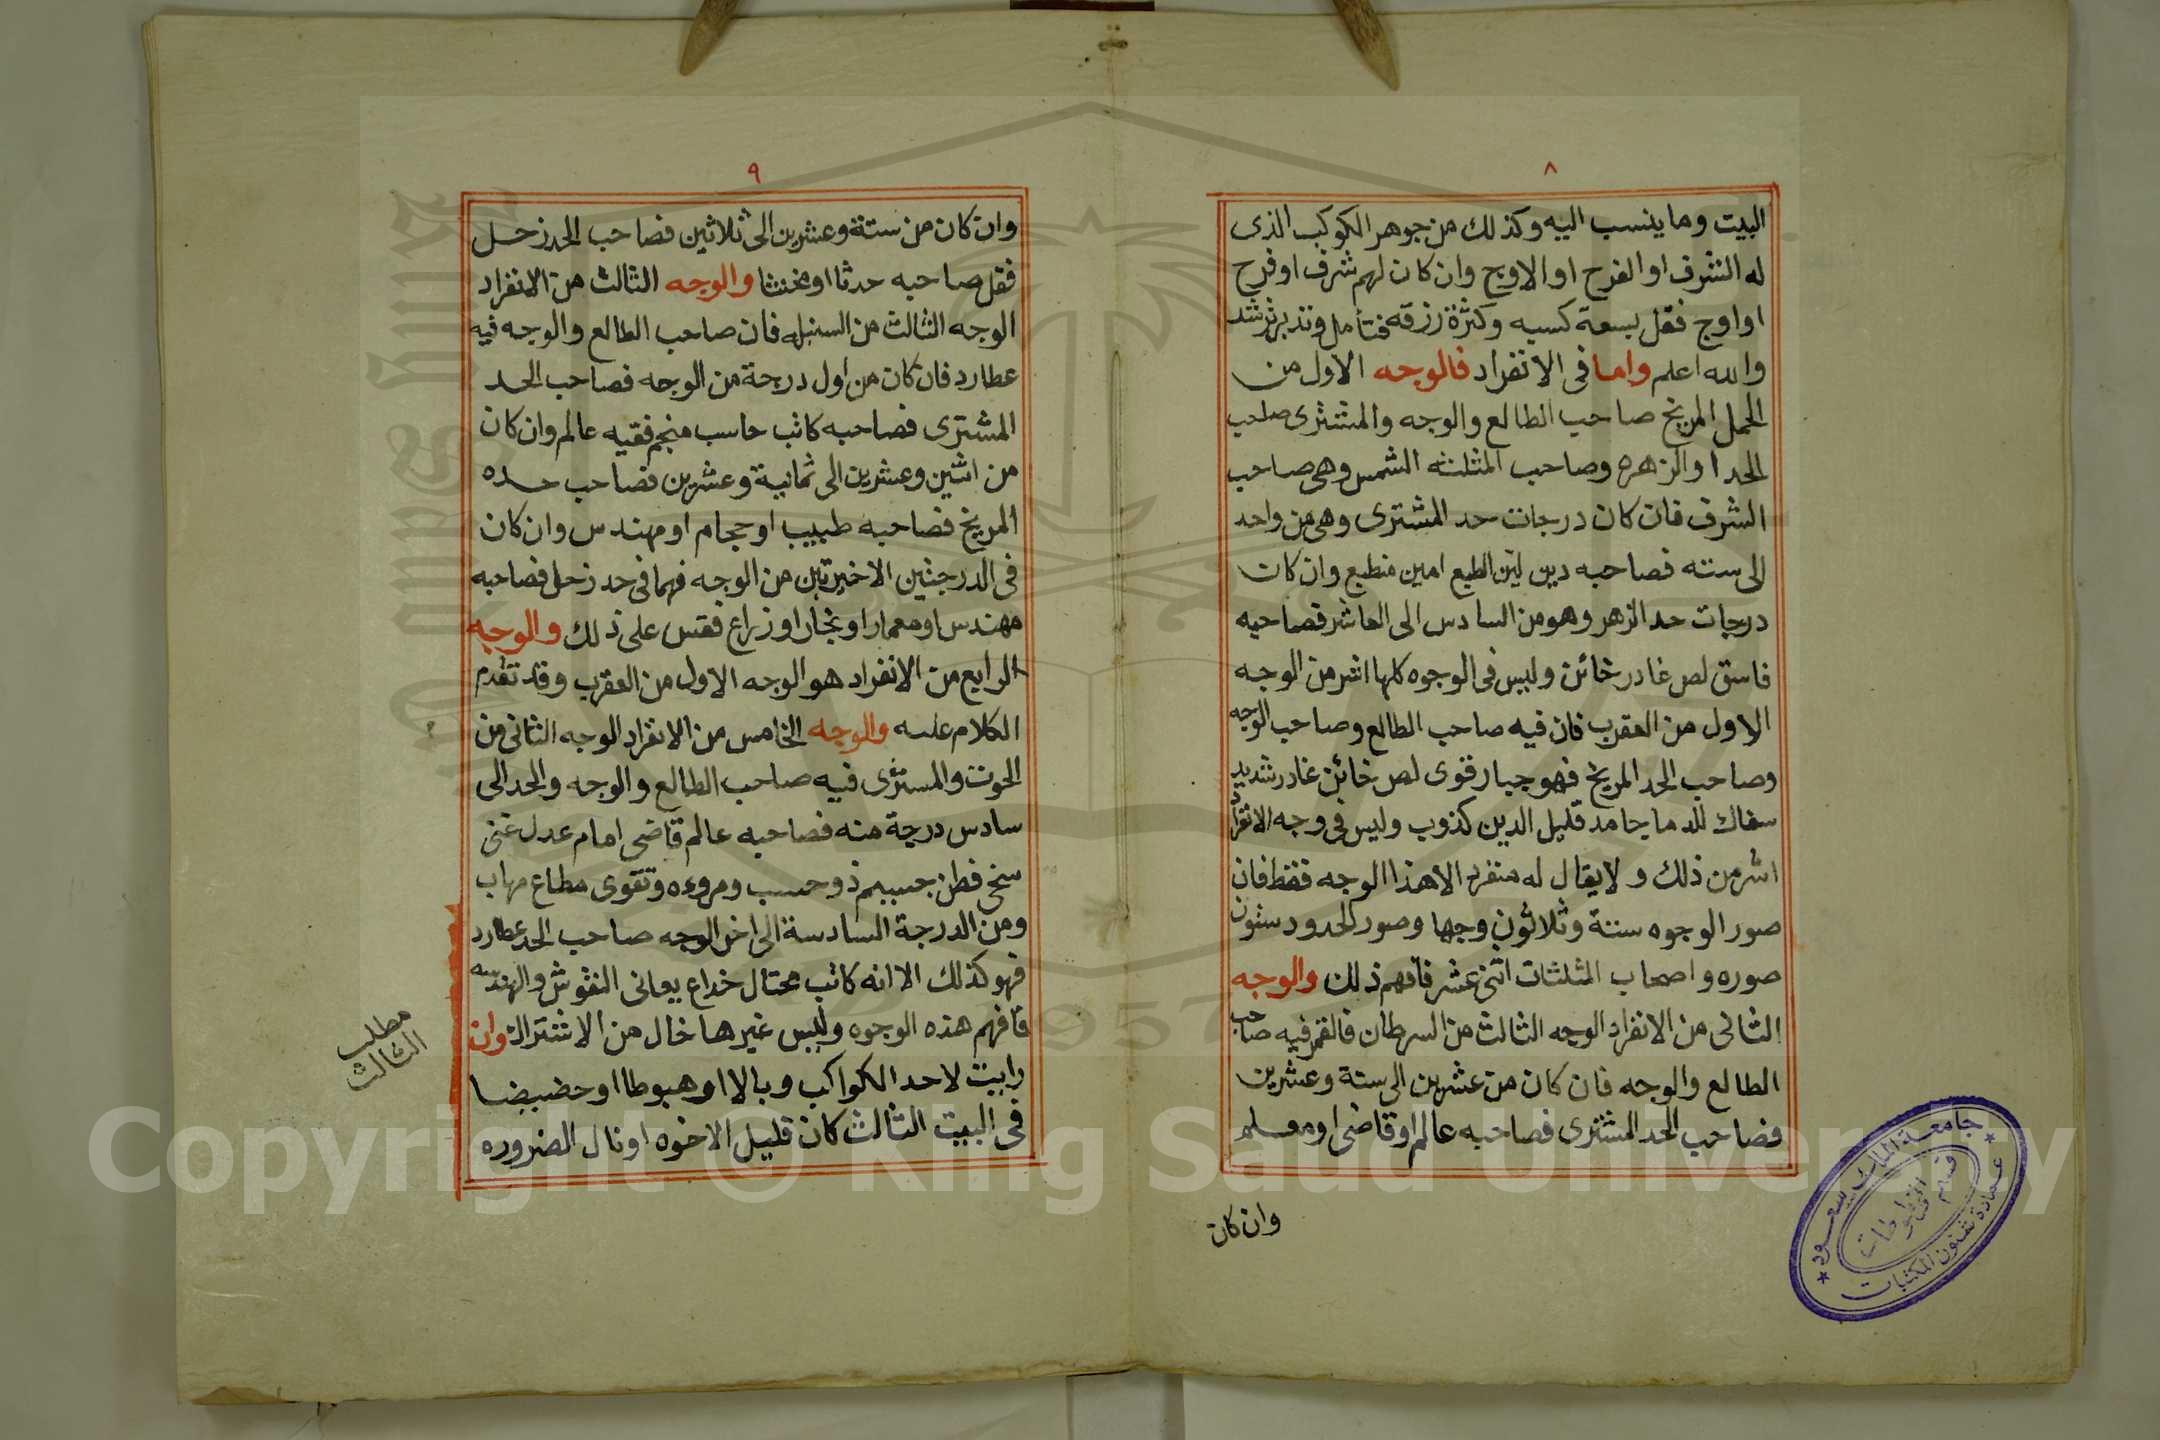 ٨
البيت وما ينسب اليه وكذلك من جوهر الكوكب الذى
له الشرف او الفرح او الاوج وان كان لهم شرف او فرح
او اوج فقل بسعة كسبه وكثرة رزقه فتأمل وتدبر ترشد
والله اعلم واما فى الانفراد فالوجه الاول من
الحمل المريخ صاحب الطالع والوجه والمشترى صاحب
الحد او الزهره وصاحب المثلثه الشمس وهى صاحب
الشرف فان كان درجات حد المشترى وهى من واحد
الى سته فصاحبه دين لين الطبع امين منطبع وان كان
درجات حد الزهر وهو من السادس الى العاشر فصاحبه
فاسق لص غادر خائن وليس فى الوجوه كلها اشر من الوجه
الاول من العقرب فان فيه صاحب الطالع وصاحب الوجه
وصاحب الحد المريخ فهو جبار قوى لص خائن غادر شديد
سفاك للدما جامد قليل الدين كذوب وليس فى وجه الانفراد
اشر من ذلك ولا يقال له منفرد الا هذا الوجه فقط فان
صور الوجوه ستة وثلاثون وجها وصور الحدود ستون
صوره واصحاب المثلثات اثنى عشر فافهم ذلك والوجه
الثانى من الانفراد الوجه الثالث من السرطان فالقمر فيه صاحب
الطالع والوجه فان كان من عشرين الى ستة وعشرين
فصاحب الحد المشترى فصاحبه عالم او قاضى او معلم
وان كان
٩
وان كان من ستة وعشرين الى ثلاثين فصاحب الحد زحل
فقل صاحبه حدثا او مخنثا والوجه الثالث من الانفراد
الوجه الثالث من السنبله فان صاحب الطالع والوجه فيه
عطارد فان كان من اول درجة من الوجه فصاحب الحد
المشترى فصاحبه كاتب حاسب منجم فقيه عالم وان كان
من اثنين وعشرين الى ثمانية وعشرين فصاحب حده
المريخ فصاحبه طبيب او حجام او مهندس وان كان
فى الدرجتين الاخيرتين من الوجه فهما فى حد زحل فصاحبه
مهندس او معمار او نجار او زراع فقس على ذلك والوجه
الرابع من الانفراد هو الوجه الاول من العقرب وقد تقدم
الكلام عليه والوجه الخامس من الانفراد الوجه الثانى من
الحوت والمسترى فيه صاحب الطالع والوجه والحد الى
سادس درجة منه فصاحبه عالم قاضى امام عدل غنى
سخى فطن جسيم ذو حسب ومروءه وتقوى مطاع مهاب
ومن الدرجة السادسة الى اخر الوجه صاحب الحد عطارد
فهو كذلك الا انه كاتب محتال خداع يعانى النقوش والهندسه
فافهم هذه الوجوه وليس غيرها خال من الاشتراك وان
رايت لاحد الكواكب وبالا او هبوطا او حضيضا
فى البيت الثالث كان قليل الاخوه او نال الضروره
مطلب
الثالث
جامعة الملك سعود
قسم المخطوطات
عمادة شئون المكتبات
King Saud University
1957
Copyright © King Saud University